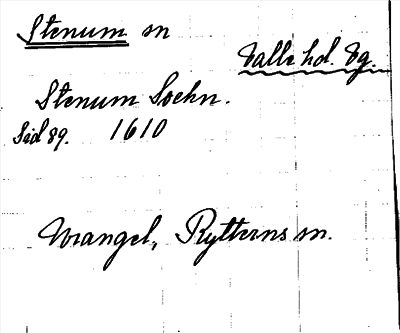 Stenum sn
Valle hd. Vg.
Stenum Sochn.
Sid 89. 1610
Wrangel, Rytterns sn.